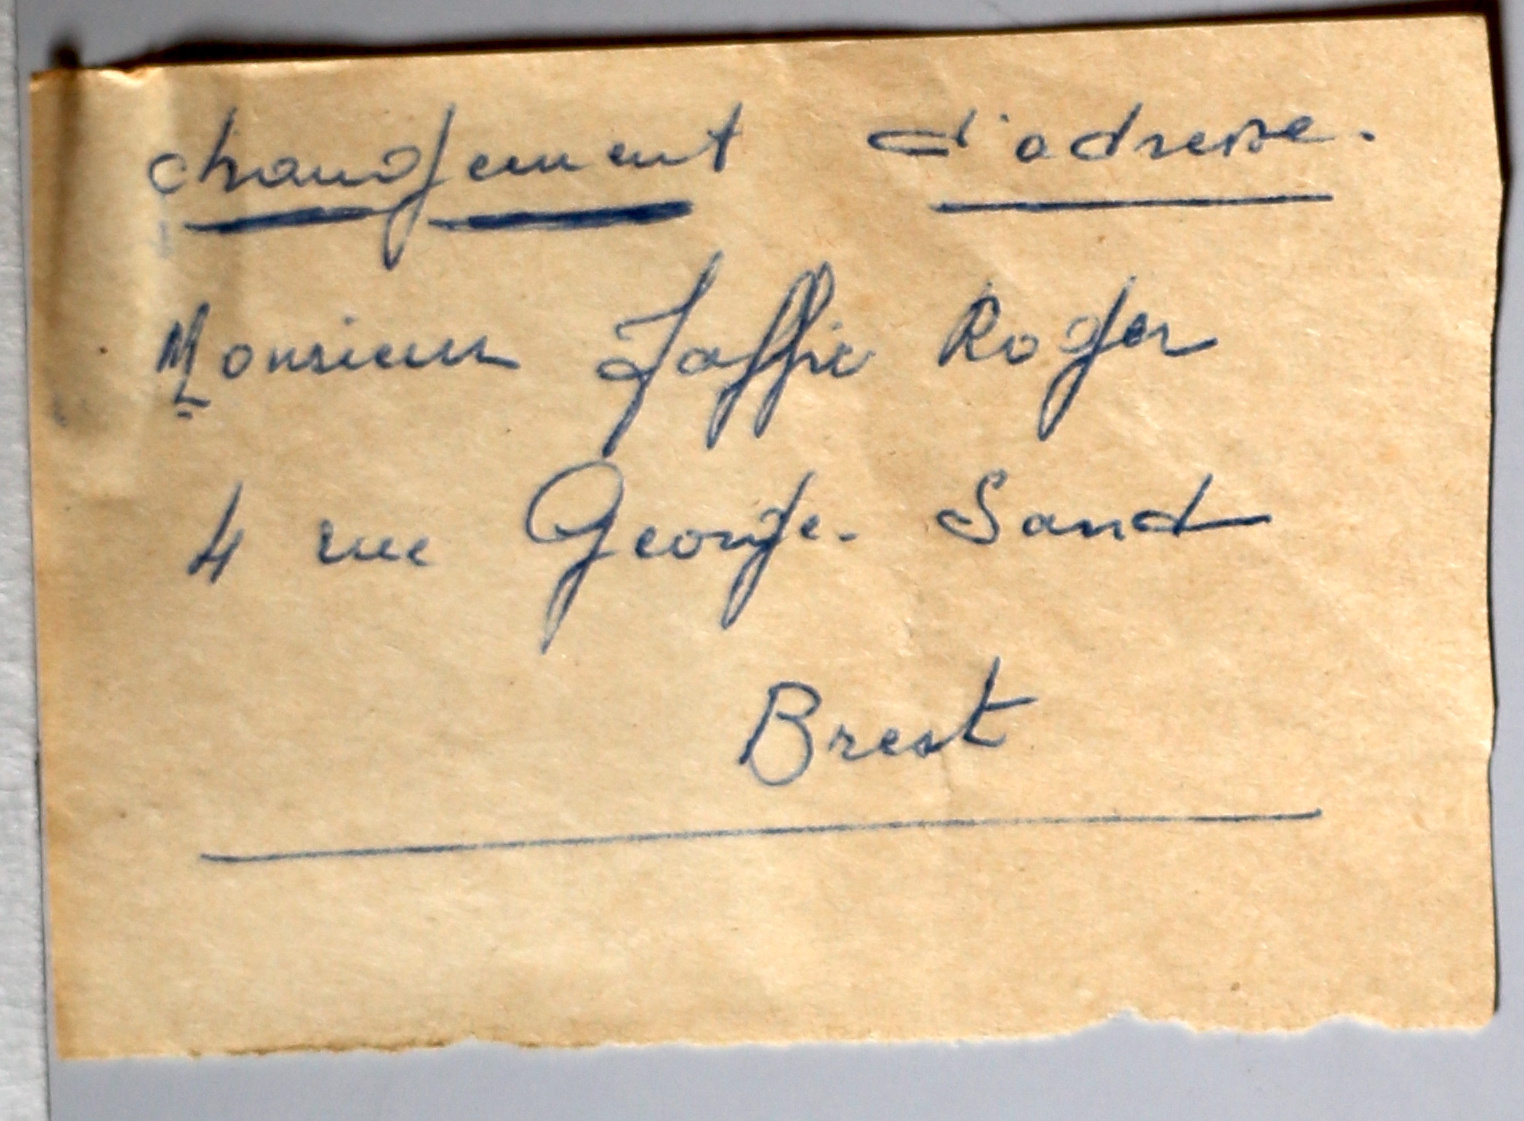 changement d'adresse.
Monsieur Jaffré Roger
4 rue George Sand
Brest